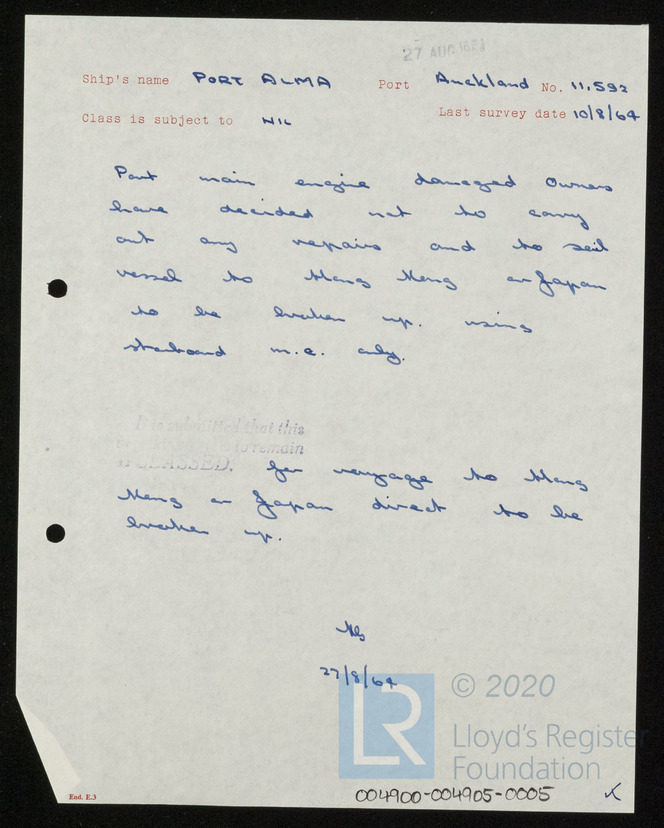 27 AUG 1964
Ship's name PORT ALMA Port Auckland No. 11,592
Class is subject to NIL Last survey date 10/8/64
Port main engine damaged Owners
have decided not to carry
out any repairs and to sail
vessel to Hong Kong or Japan
to be broken up. using
starboard m.e. only.
It is submitted that this
to remain
CLASSED. for voyage to Hong
Kong or Japan direct to be
broken up.
27/8/64
© 2020
LR
Lloyd's Register
Foundation
End. E.3
004900-004905-0005